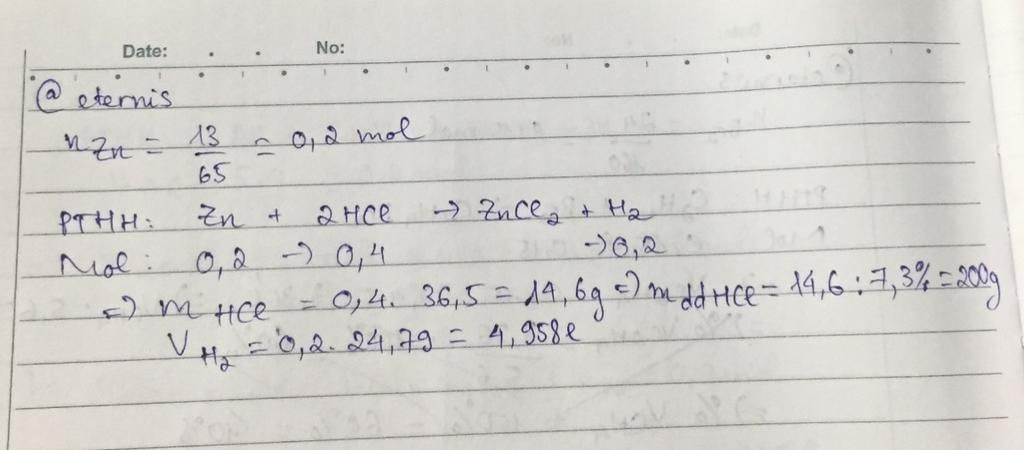 Date: . . No:
@ eternis
nZn = 13/65 = 0,2 mol
PTHH: Zn + 2HCl → ZnCl₂ + H₂
Mol: 0,2 → 0,4 → 0,2
=> mHCl = 0,4. 36,5 = 14,6g => mddHCl = 14,6 : 7,3% = 200g
VH₂ = 0,2. 24,79 = 4,958l